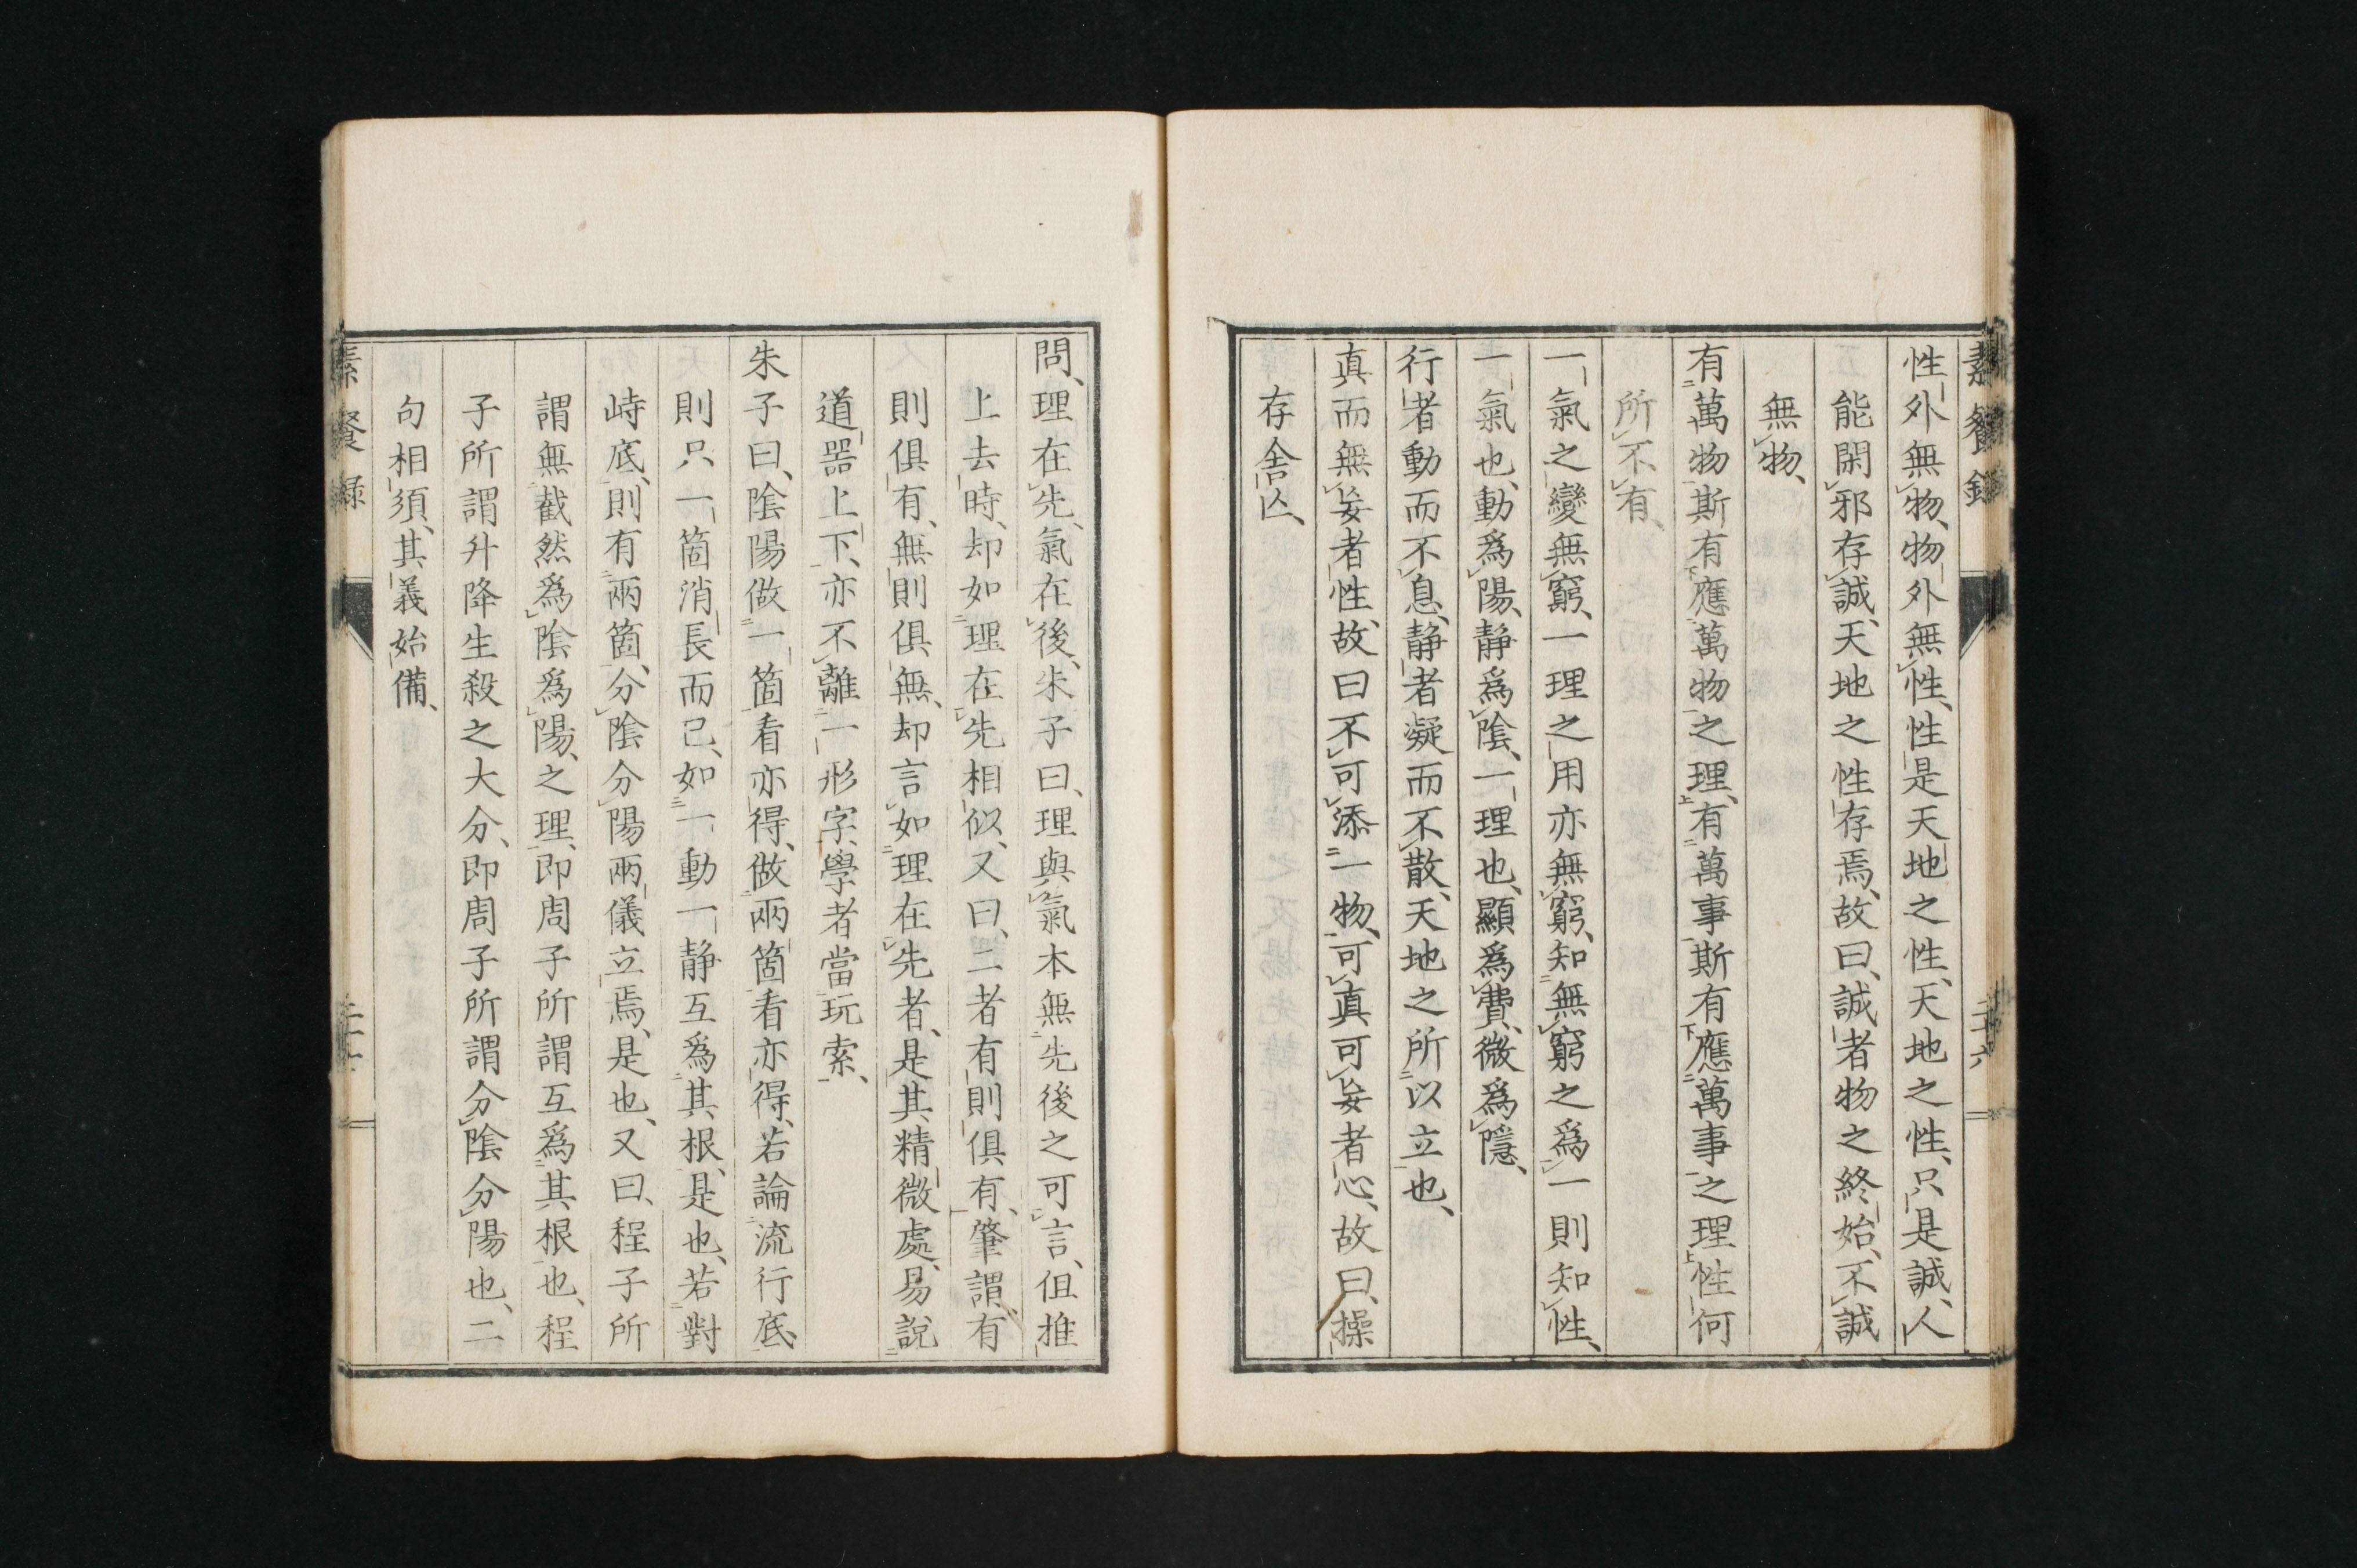 素餐錄
二十六
性外無物、物外無性、性是天地之性、天地之性、只是誠、人
能閑邪存誠、天地之性存焉、故曰、誠者物之終始、不誠
無物、
有萬物斯有應萬物之理、有萬事斯有應萬事之理性何
所不有、
一氣之變無窮、一理之用亦無窮、知無窮之爲一則知性、
一氣也、動爲陽、静爲陰、一理也、顯爲費、微爲隱、
行者動而不息、静者凝而不散、天地之所以立也、
真而無妄者性、故曰不可添一物、可真可妄者心、故曰、操
存舍亾、
問、理在先、氣在後、朱子曰、理與氣本無先後之可言、但推
上去時、却如理在先相似、又曰、二者有則俱有、肇謂、有
則俱有、無則俱無、却言如理在先者、是其精微處、易説
道器上下、亦不離一形字、學者當玩索、
朱子曰、陰陽做一箇看亦得、做兩箇看亦得、若論流行底、
則只一箇消長而已、如一動一静互爲其根、是也、若對
峙底、則有兩箇、分陰分陽兩儀立焉、是也、又曰、程子所
謂無截然爲陰爲陽、之理、即周子所謂互爲其根也、程
子所謂升降生殺之大分、即周子所謂分陰分陽也、二
句相須、其義始備、
素餐録